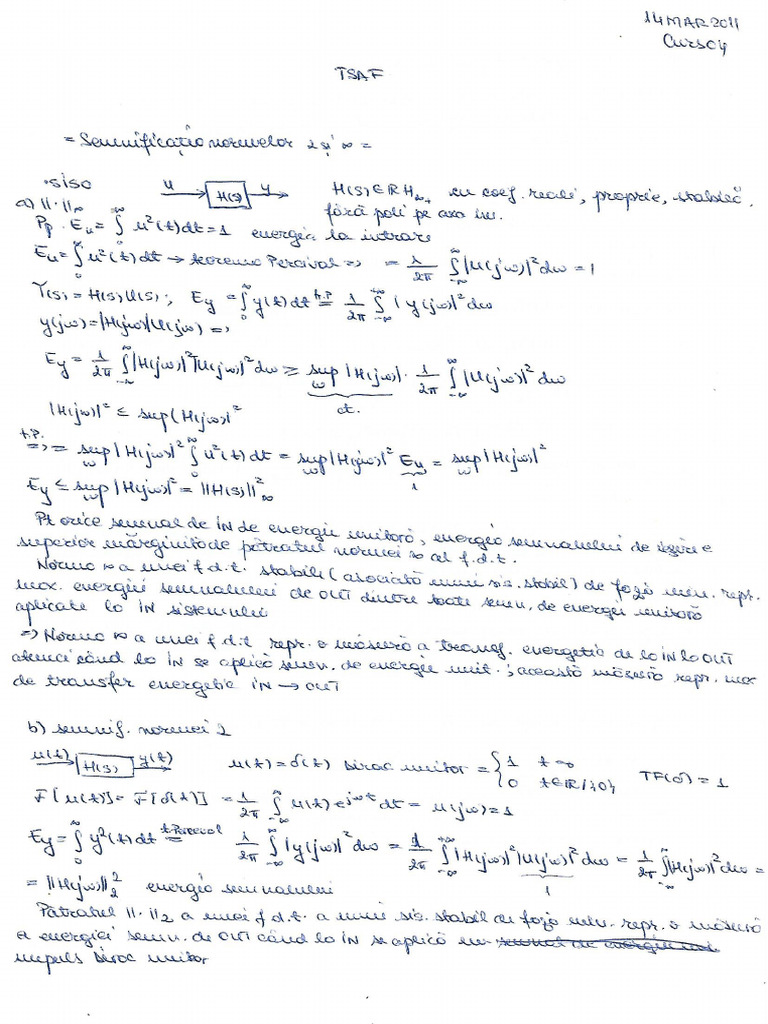 14 MAR 2011
Curs 04
TSAF
= Semnificația normelor 2 și ∞ =
• SISO u → H(s) → y H(s) ∈ RH∞, cu coef. reali, proprie, stabilă,
a) ||·||∞ fără poli pe axa im.
Pp. E_u = ∫_0^∞ u²(t)dt = 1 energia la intrare
E_u = ∫_0^∞ u²(t)dt → teorema Percival => = 1/2π ∫_{-∞}^{∞} |u(jω)|² dω = 1
Y(s) = H(s)U(s); E_y = ∫_0^∞ y(t)dt =^{t.P} 1/2π ∫_{-∞}^{+∞} |y(jω)|² dω
y(jω) = |H(jω)|U(jω) =>
E_y = 1/2π ∫_{-∞}^{∞} |H(jω)|²|U(jω)|² dω ≤ sup_ω |H(jω)|· 1/2π ∫_{-∞}^{∞} |U(jω)|² dω
ct.
|H(jω)|² ≤ sup|H(jω)|²
=>^{t.P.} = sup_ω |H(jω)|² ∫_0^∞ u²(t)dt = sup_ω |H(jω)|² E_u = sup_ω |H(jω)|²
1
E_y ≤ sup_ω |H(jω)|² = ||H(s)||²_∞
Pt orice semnal de IN de energie unitară, energia semnalului de ieșire e
superior mărginită de pătratul normei ∞ al f.d.t.
Norma ∞ a unei f.d.t. stabile (asociată unui sis. stabil) de fază min. repr.
max. energiei semnalului de OUT dintre toate semn. de energie unitară
aplicate la IN sistemului
=> Norma ∞ a unei f.d.t repr. o măsură a transf. energetic de la IN la OUT
atunci când la IN se aplică semn. de energie unit.; această măsură repr. max
de transfer energetic IN → OUT
b) semnif. normei 2
u(t) → H(s) → y(t) u(t) = δ(t) Dirac unitar = { 1 t=0
0 t∈R\{0} TF(δ) = 1
F[u(t)] = F[δ(t)] = 1/2π ∫_{-∞}^{∞} u(t) e^{jωt} dt = u(jω) = 1
E_y = ∫_0^∞ y²(t)dt =^{t.Parceval} 1/2π ∫_{-∞}^{∞} |y(jω)|² dω = 1/2π ∫_{-∞}^{+∞} |H(jω)|²|u(jω)|² dω = 1/2π ∫_{-∞}^{∞} |H(jω)|² dω =
1
= ||H(jω)||²_2 energia semnalului
Pătratul ||·||_2 a unei f.d.t. a unui sis. stabil de fază min. repr. o măsură
a energiei semn. de OUT când la IN se aplică un semnal de energie
impuls Dirac unitar